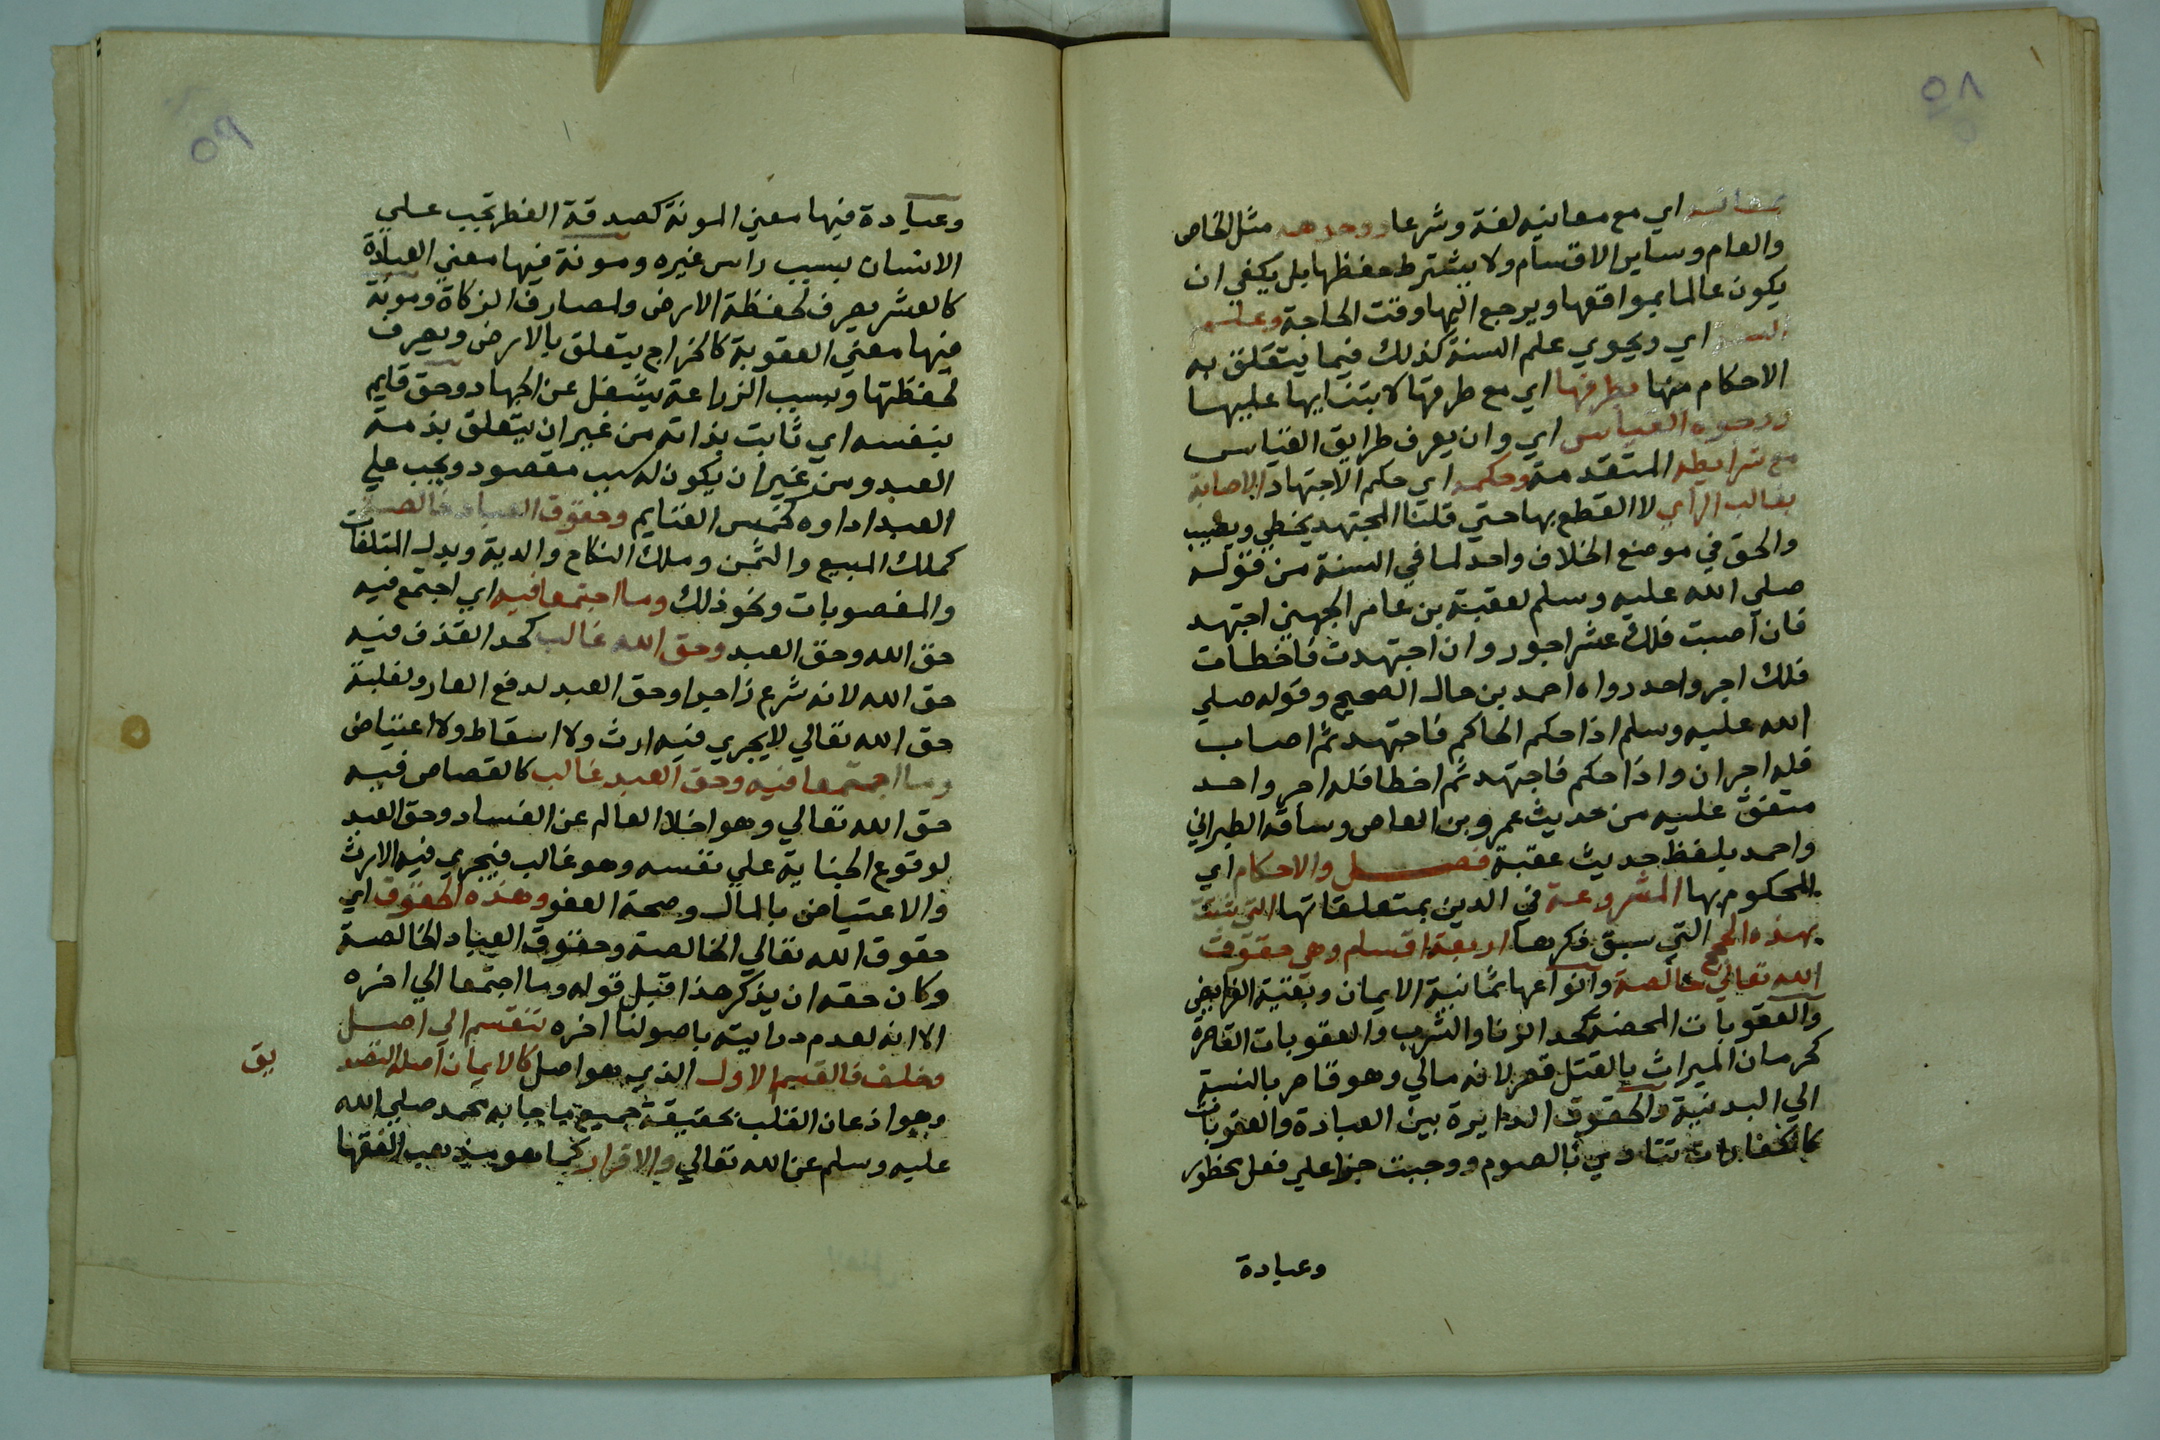 ٥٨
بمعانيه اي مع معانيه لغة وشرعا ووجوهه مثل الخاص
والعام وساير الاقسام ولا يشترط حفظها بل يكفي ان
يكون عالما بمواقعها ويرجع اليها وقت الحاجة وعلم
السنة اي ويحوي علم السنة كذلك فيما يتعلق به
الاحكام منها بطرقها اي مع طرقها لابتنايها عليها
ووجوه القياس اي وان يعرف طرايق القياس
مع شرايطه المتقدمة وحكمه اي حكم الاجتهاد الاصابة
بغالب الراي لا القطع بها حتي قلنا المجتهد يخطي ويصيب
والحق في موضع الخلاف واحد لما في السنة من قوله
صلي الله عليه وسلم لعقبة بن عامر الجهني اجتهد
فان اصبت فلك عشر اجور وان اجتهدت فاخطات
فلك اجر واحد رواه احمد بن حال الصحيح وقوله صلي
الله عليه وسلم اذا حكم الحاكم فاجتهد ثم اصاب
فله اجران واذا حكم فاجتهد ثم اخطا فله اجر واحد
متفق عليه من حديث عمرو بن العاص وساقه الطبراني
واحمد بلفظ حديث عقبة فصل والاحكام اي
المحكوم بها المشروعة في الدين بمتعلقاتها التي تثبت
بهذه الحجج التي سبق ذكرها اربعة اقسام وهي حقوق
الله تعالي خالصة وانواعها ثمانية الايمان وبقية الفرايض
والعقوبات المحضة كحد الزنا والشرب والعقوبات القاصرة
كحرمان الميراث بالقتل لانه مالي وهو قاصر بالنسبة
الي البدنية والحقوق الدايرة بين العبادة والعقوبات
كالكفارات تتادي بالصوم ووجبت جزا علي فعل محظور
وعبادة
٥٩
وعبادة فيها معني المونة كصدقة الفطر تجب علي
الانسان بسبب راس غيره ومونة فيها معني العبادة
كالعشر يصرف لحفظة الارض ولمصارف الزكاة ومونة
فيها معني العقوبة كالخراج يتعلق بالارض ويصرف
لحفظتها وبسبب الزراعة يشغل عن الجهاد وحق قايم
بنفسه اي ثابت بذاته من غير ان يتعلق بذمة
العبد ومن غير ان يكون له سبب مقصود ويجب علي
العبد اداوه كخمس الغنايم وحقوق العباد خالصة
كملك المبيع والثمن وملك النكاح والدية وبدل المتلفات
والمغصوبات ونحو ذلك وما اجتمعا فيه اي اجتمع فيه
حق الله وحق العبد وحق الله غالب كحد القذف فيه
حق الله لانه شرع زاجرا وحق العبد لدفع العار ولغلبة
حق الله تعالي لا يجري فيه ارث ولا اسقاط ولا اعتياض
وما اجتمعا فيه وحق العبد غالب كالقصاص فيه
حق الله تعالي وهو اخلا العالم عن الفساد وحق العبد
لوقوع الجناية علي نفسه وهو غالب فيجري فيه الارث
والاعتياض بالمال وصحة العفو وهذه الحقوق اي
حقوق الله تعالي الخالصة وحقوق العباد الخالصة
وكان حقه ان يذكر هذا قبل قوله وما اجتمعا الي اخره
الا انه لعدم درايته باصولنا اخره تنقسم الي اصل
وخلف فالقسم الاول الذي هو اصل كالايمان اصله التصد
يق
وهو اذعان القلب بحقيقة جميع ما جا به محمد صلي الله
عليه وسلم عن الله تعالي والاقرار كما هو مذهب الفقها